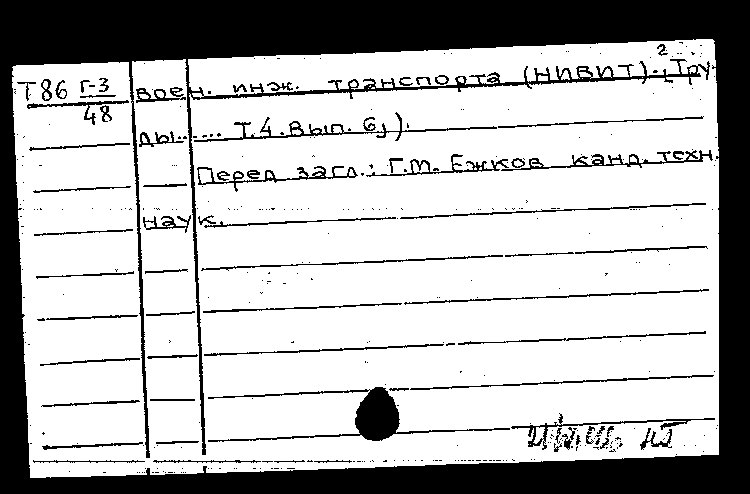 Т86 Г-3 воен. инж. транспорта (НИВИТ). Тру-
48
ды...... Т.4. Вып. 6,).
Перед загл.: Г.М. Ежков канд. техн.
наук.